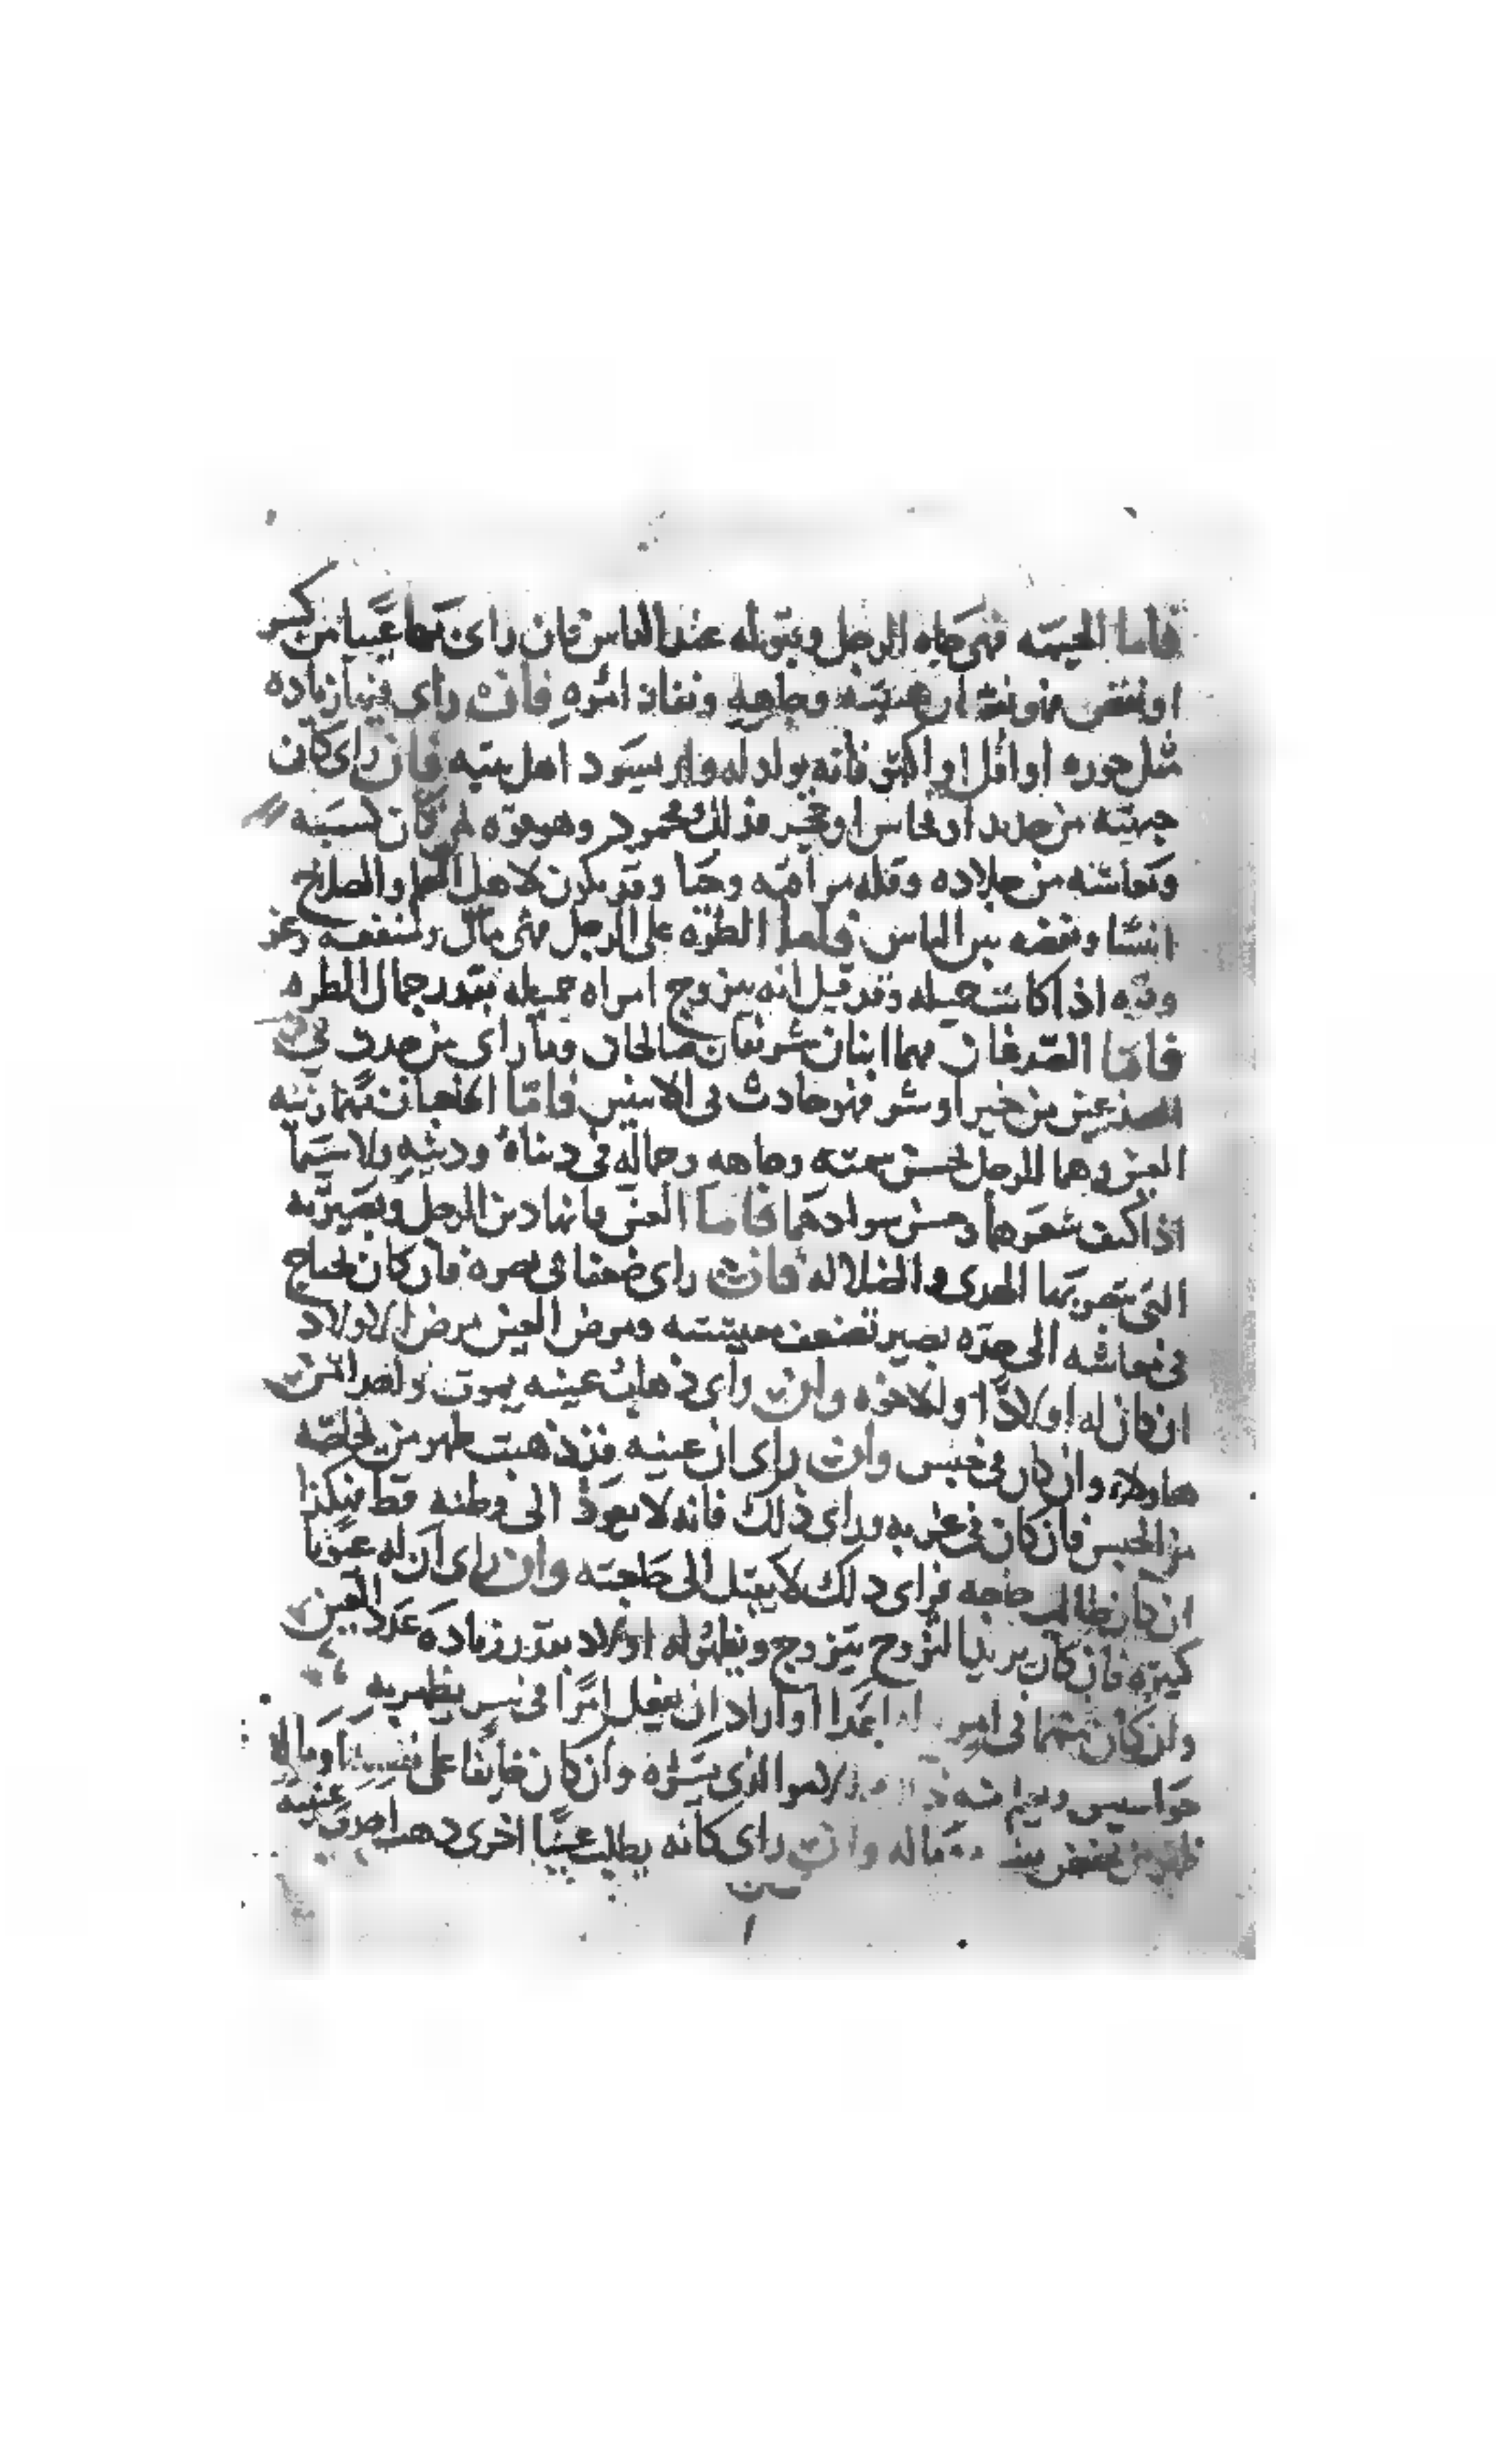 فاما الجبهه فهى جاه الرجل وقبوله عند الناس فان راى بهما عيبا من كسر
او نقص فهو نقصان هيبته وجاهه ونفاذ امره فان راى فيها زياده
مثل جوره او اقل او اكثر فانه يولد له ولد يسود اهل بيته فان راى كان
جبهته من حديد او نحاس او حجر فذلك محمود وهو قوه لمن كان كسبه
ومعاشه من جلاده وقله مراقبه وحيا وقد يكون لاهل العلم والصلاح
وبغضه بين الناس فاما الطره على الرجل فهى مال ومنفعه وعز
وقوه اذا كانت جميله وقد قيل انه يتزوج امراه جميله بقدر جمال الطره
فاما الصدغان فهما ابنان شريفان صالحان فما راى من حدث فى
الصدغين من خير او شر فهو حادث فى الابنين فاما الحاجبان فهما زينه
العين وهما للرجل حسن سمته وجاهه وحاله فى دنياه ودينه ولا سيما
اذا كثف شعرهما وحسن سوادهما فاما العين فانها دين الرجل وبصيرته
التى يبصر بها الهدى والضلاله فان راى ضعفا فى بصره فان كان يحتاج
فى معاشه الى حده بصر تضعف معيشته ومرض العين مرض الاولاد
ان كان له اولادا اولاخوه وان راى ذهاب عينه يموت واحدا من
هاولاء وان كان فى حبس وان راى ان عينه قد ذهبت طهر من خلصه
من الحبس فان كان فى غربه وراى ذلك فانه لا يعود الى وطنه قط هكذا
ان كان طالب حاجه فراى ذلك لا يصل الى حاجته وان راى ان له عيونا
كثيره فان كان يريد التزوج يتزوج ويظهر له اولاد بقدر زياده عدد العين
وان كان متهما فى امر او اراد ان يفعل امرا فى سر يظهر به
جواسيس الامر الذى يستره وان كان خايفا على نفسه او ماله
ماله وان راى كانه يطلب عينا اخرى ذهب احدى عينيه